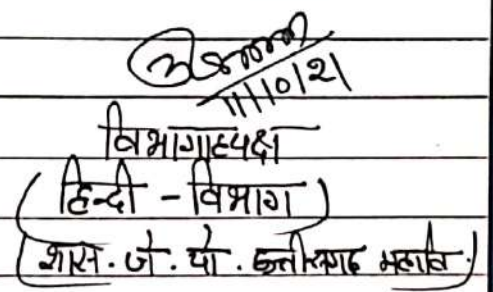 11/10/21
विभागाध्यक्ष
(हिन्दी - विभाग)
(शास. जे. यो. छत्तीसगढ़ महावि.)